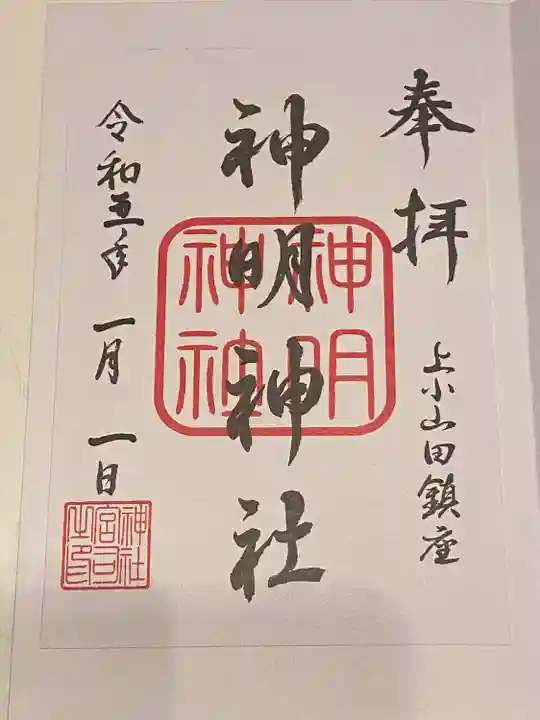 奉拝
上小山田鎮座
神明神社
神明
神社
令和五年 一月 一日
神社
宮司
之印